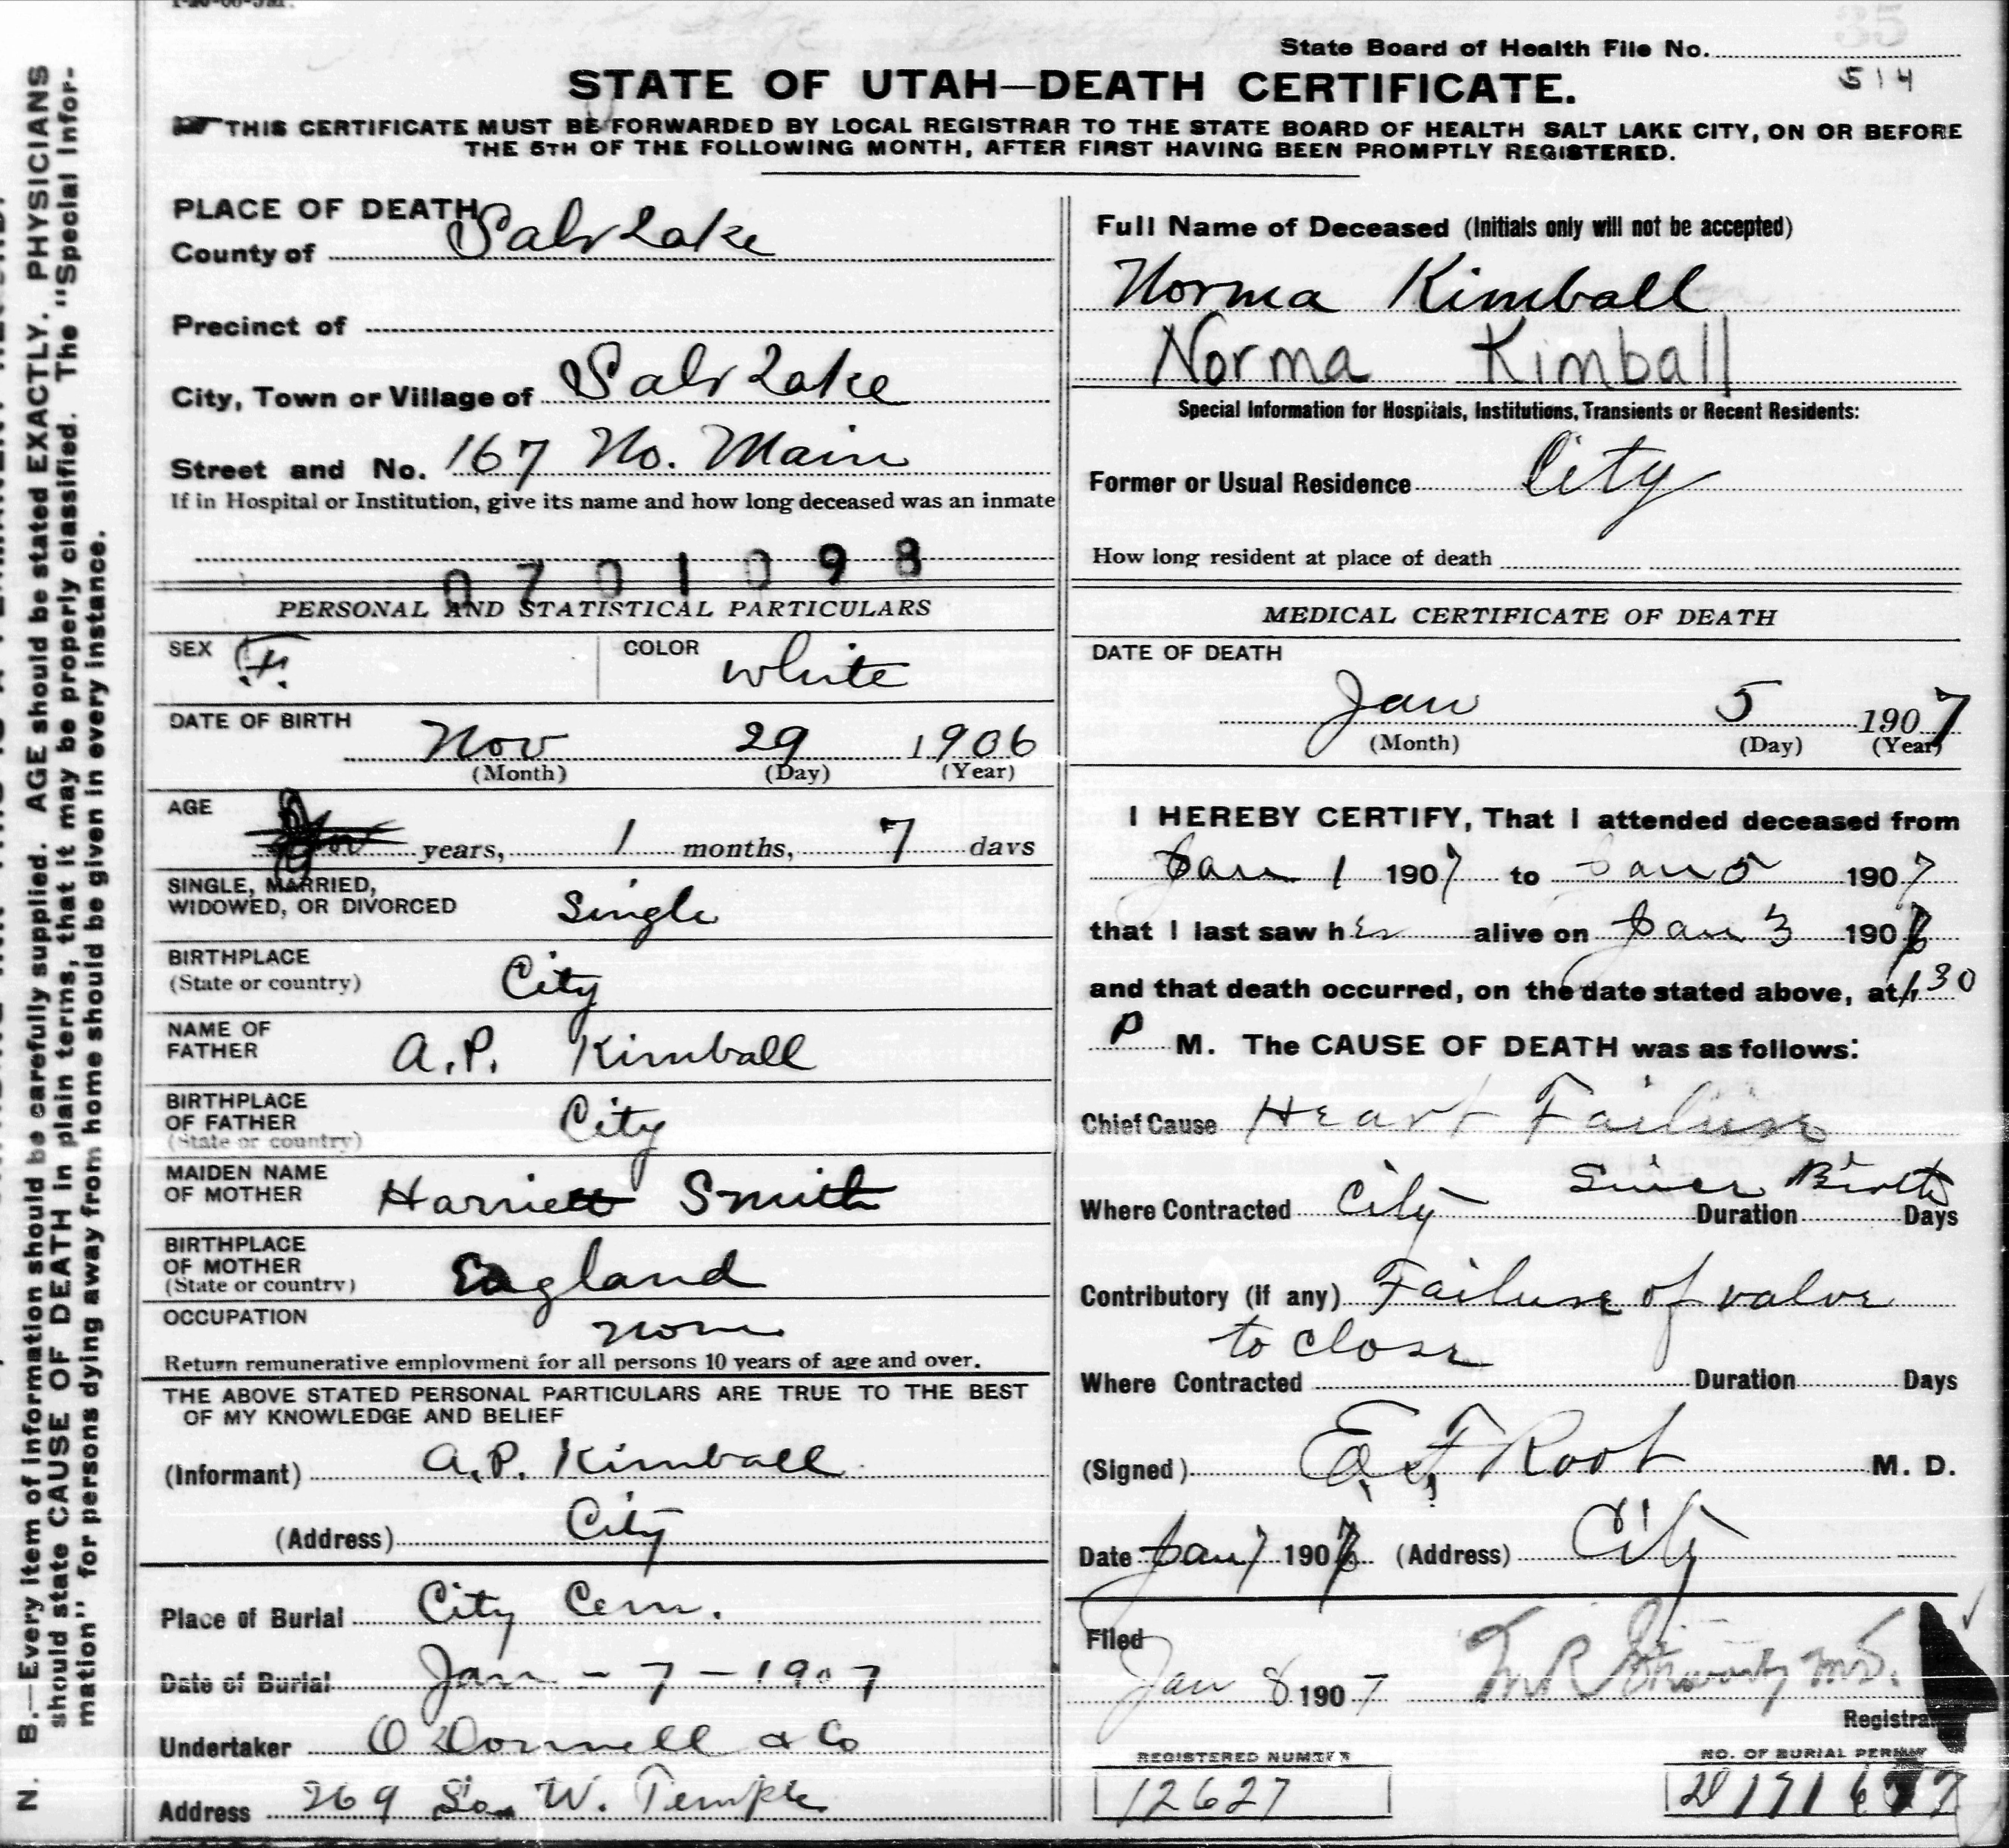 State Board of Health File No.
35
514
STATE OF UTAH—DEATH CERTIFICATE.
THIS CERTIFICATE MUST BE FORWARDED BY LOCAL REGISTRAR TO THE STATE BOARD OF HEALTH SALT LAKE CITY, ON OR BEFORE
THE 5TH OF THE FOLLOWING MONTH, AFTER FIRST HAVING BEEN PROMPTLY REGISTERED.
N. B.—Every item of information should be carefully supplied. AGE should be stated EXACTLY. PHYSICIANS
should state CAUSE OF DEATH in plain terms, that it may be properly classified. The "Special Infor-
mation" for persons dying away from home should be given in every instance.
PLACE OF DEATH
County of Salt Lake
Precinct of
City, Town or Village of Salt Lake
Street and No. 167 No. Main
If in Hospital or Institution, give its name and how long deceased was an inmate
0701098
PERSONAL AND STATISTICAL PARTICULARS
SEX F. COLOR white
DATE OF BIRTH
Nov 29 1906
(Month) (Day) (Year)
AGE
years, 1 months, 7 days
SINGLE, MARRIED,
WIDOWED, OR DIVORCED Single
BIRTHPLACE
(State or country) City
NAME OF
FATHER A.P. Kimball
BIRTHPLACE
OF FATHER City
(State or country)
MAIDEN NAME
OF MOTHER Harriett Smith
BIRTHPLACE
OF MOTHER
(State or country) England
OCCUPATION none
Return remunerative employment for all persons 10 years of age and over.
THE ABOVE STATED PERSONAL PARTICULARS ARE TRUE TO THE BEST
OF MY KNOWLEDGE AND BELIEF
(Informant) A.P. Kimball
(Address) City
Place of Burial City Cem.
Date of Burial Jan - 7 - 1907
Undertaker O Donnell & Co
Address 269 So. W. Temple
Full Name of Deceased (Initials only will not be accepted)
Norma Kimball
Norma Kimball
Special Information for Hospitals, Institutions, Transients or Recent Residents:
Former or Usual Residence City
How long resident at place of death
MEDICAL CERTIFICATE OF DEATH
DATE OF DEATH
Jan 5 1907
(Month) (Day) (Year)
I HEREBY CERTIFY, That I attended deceased from
Jan 1 1907 to Jan 5 1907
that I last saw her alive on Jan 3 1907
and that death occurred, on the date stated above, at 1.30
P M. The CAUSE OF DEATH was as follows:
Chief Cause Heart Failure
Since Birth
Where Contracted City Duration Days
Contributory (if any) Failure of valve
to close
Where Contracted Duration Days
(Signed) E.F. Root M. D.
Date Jan 7 1907 (Address) City
Filed
Jan 8 1907 M.R. Stewart M.D.
Registrar
REGISTERED NUMBER
12627
NO. OF BURIAL PERMIT